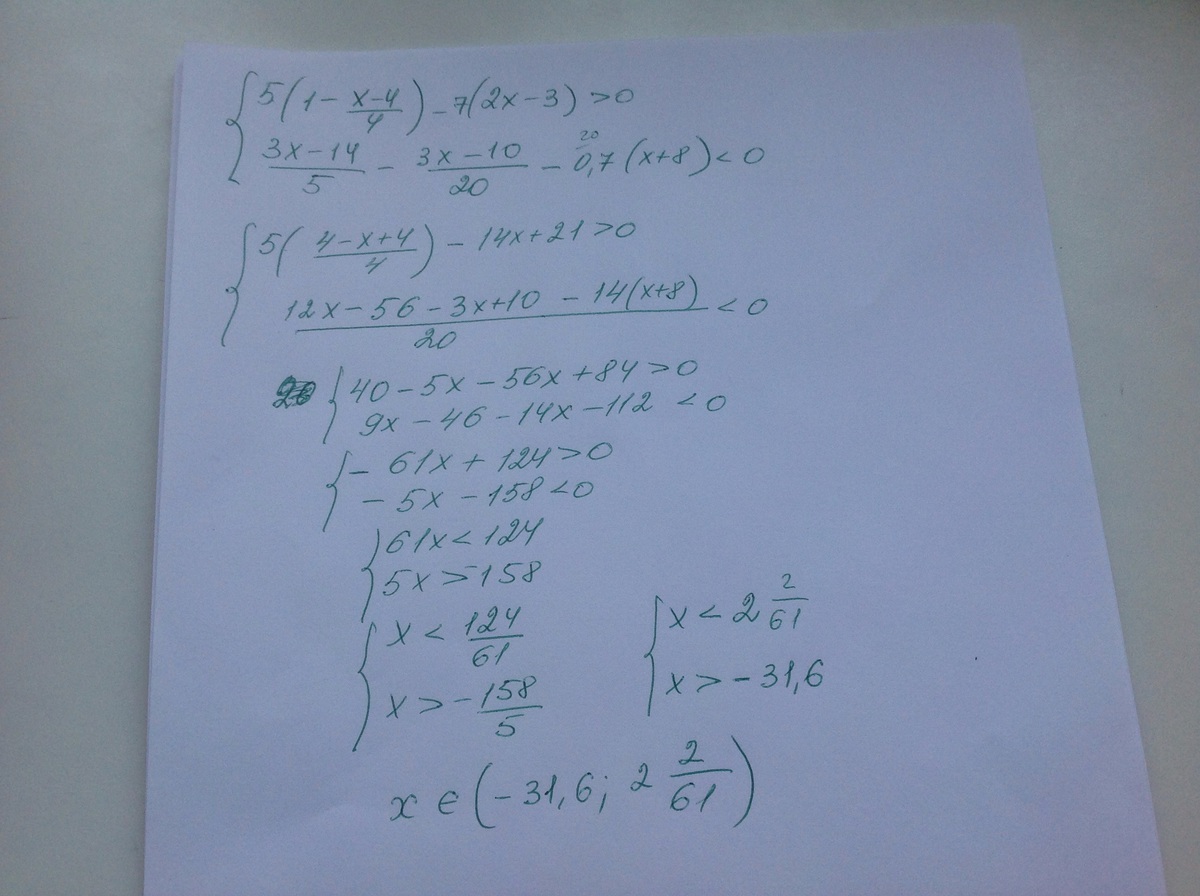 5(1 - (x-4)/4) - 7(2x-3) > 0
(3x-14)/5 - (3x-10)/20 - 0,7 (x+8) < 0
20
5((4-x+4)/4) - 14x+21 > 0
(12x-56-3x+10-14(x+8))/20 < 0
40-5x-56x+84 > 0
9x-46-14x-112 < 0
-61x+124 > 0
-5x-158 < 0
61x < 124
5x > -158
x < 124/61
x > -158/5
x < 2 2/61
x > -31,6
x ∈ (-31,6; 2 2/61)